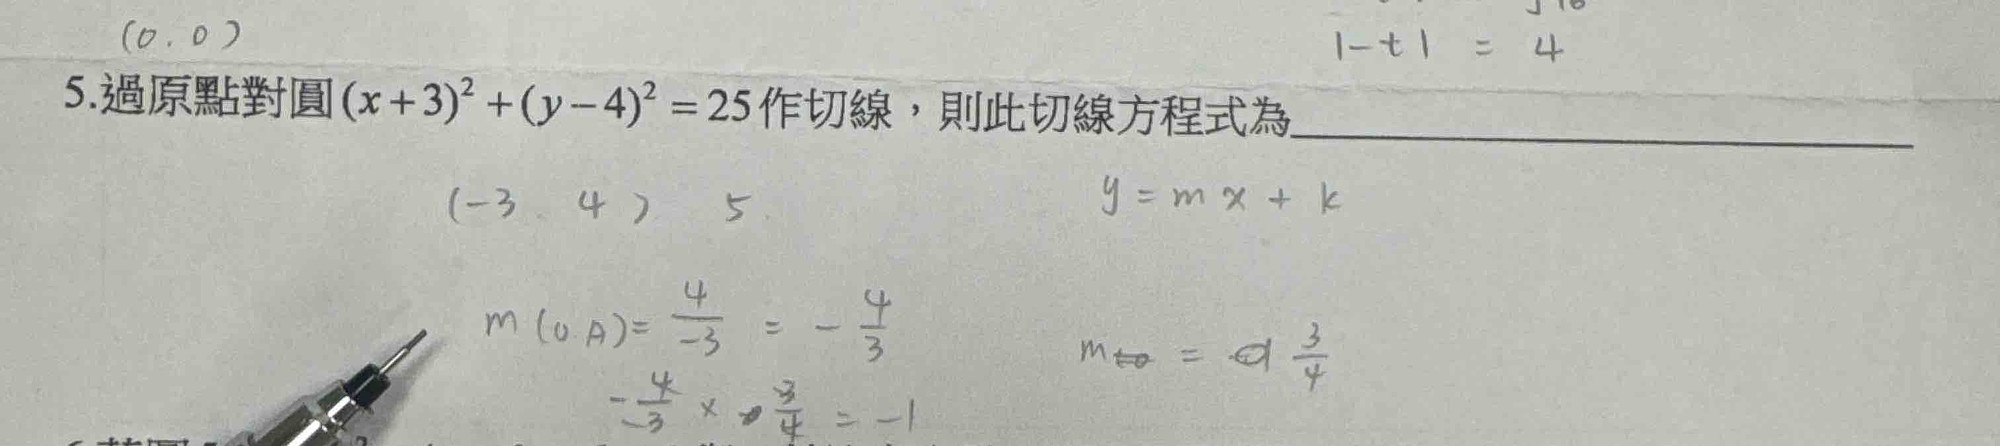 (0.0)
|-t| = 4
5.過原點對圓(x+3)²+(y-4)²=25作切線，則此切線方程式為
(-3 4) 5
y=mx+k
m(O.A)=4/-3 = -4/3
m = 3/4
-4/3 × 3/4 = -1